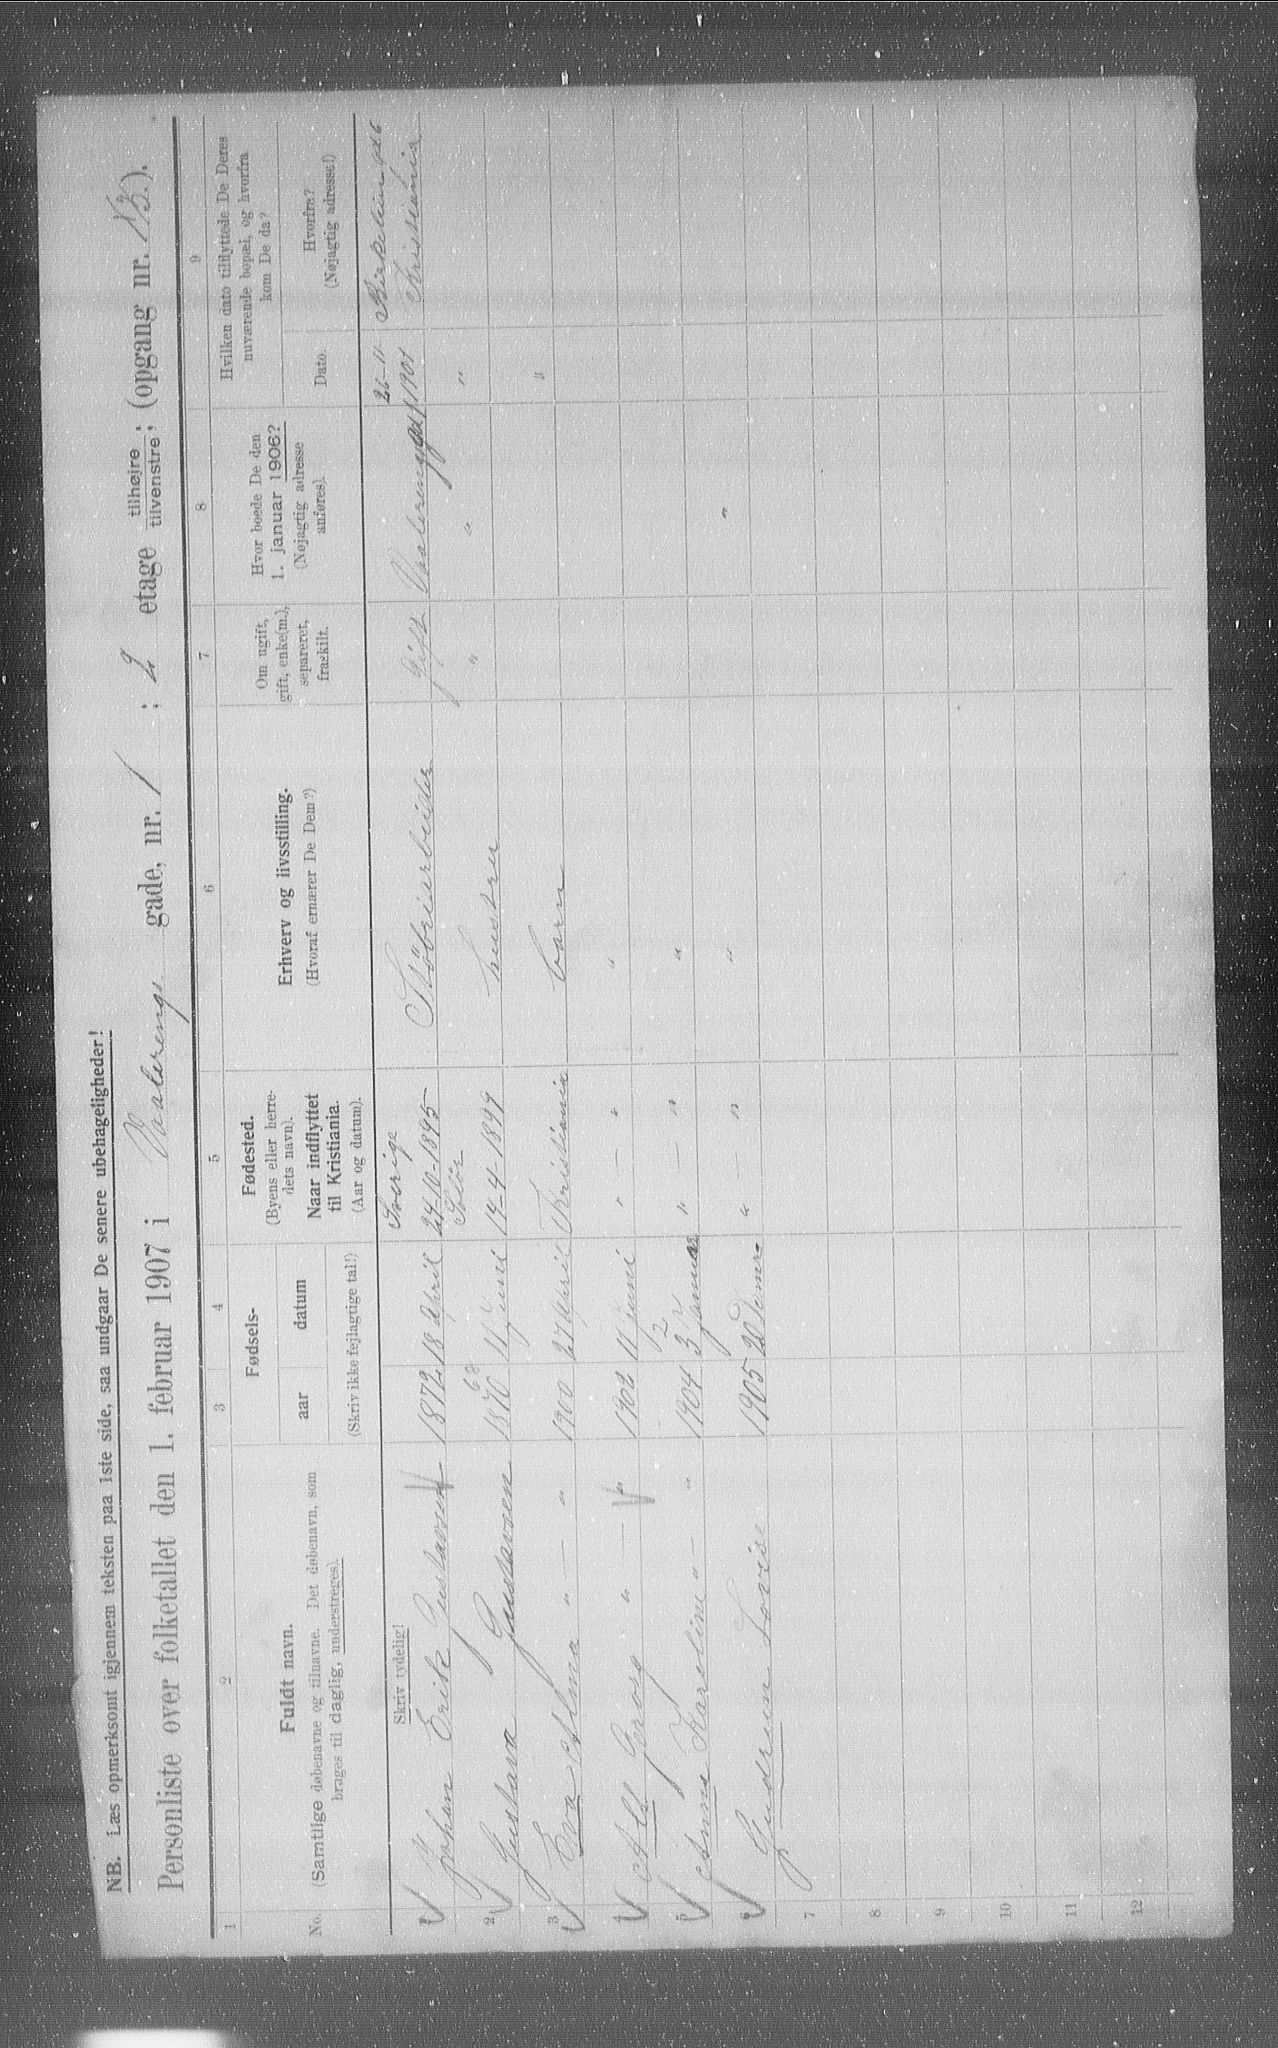 NB. Læs opmerksomt igjennem teksten paa 1ste side, saa undgaar De senere ubehageligheder!
Personliste over folketallet den 1. februar 1907 i Vaalerengs gade, nr. 1 ; 2 etage tilhøire, tilvenstre, (opgang nr. ).
1 2 3 4 5 6 7 8 9
No.
Fuldt navn.
(Samtlige døbenavne og tilnavne. Det døbenavn, som
bruges til daglig, understreges).
Skriv tydelig!
Fødsels-
aar datum
(Skriv ikke fejlagtige tal!)
Fødested.
(Byens eller herre-
dets navn).
Naar indflyttet
til Kristiania.
(Aar og datum).
Erhverv og livsstilling.
(Hvoraf ernærer De Dem?)
Om ugift,
gift, enke(m.),
separeret,
fraskilt.
Hvor boede De den
1. januar 1906?
(Nøjagtig adresse
anføres).
Hvilken dato tilflyttede De Deres
nuværende bopæl, og hvorfra
kom De da?
Dato.
Hvorfra?
(Nøjagtig adresse!)
Sverige 26-11-
Johan Erik Gustavsen 1872 18 April 24-10-1895 Støberiarbeider Gift 1901 Kristiania
68 Solør
2 Gustava Gustavsen 1870 11 Juni 14-4-1899 hustru " " "
3 Eva Alma " — " 1900 27 April Kristiania barn "
4 Alf Georg " — " 1902 11 juni " — " "
2
5 Anna Karoline " — " 1904 3 Januar " — " "
6 Gudrun Lovise 1905 20 " — " " "
7
8
9
10
11
12